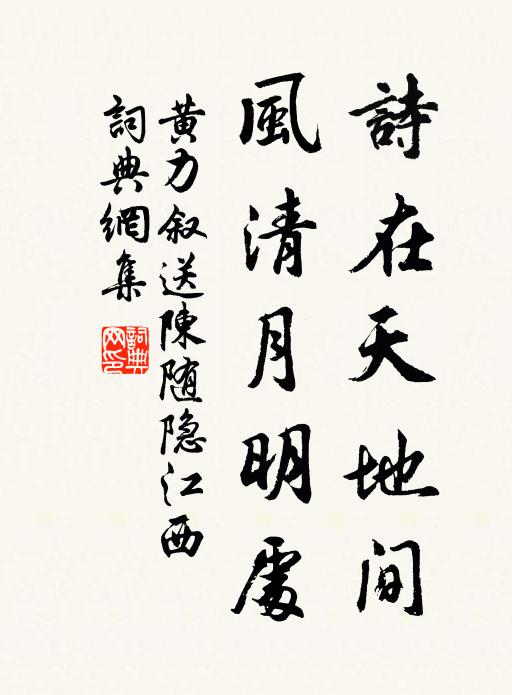 詩在天地間
風清月明處
黄力叙送陳随隐江西
詞典網集
詞典网印